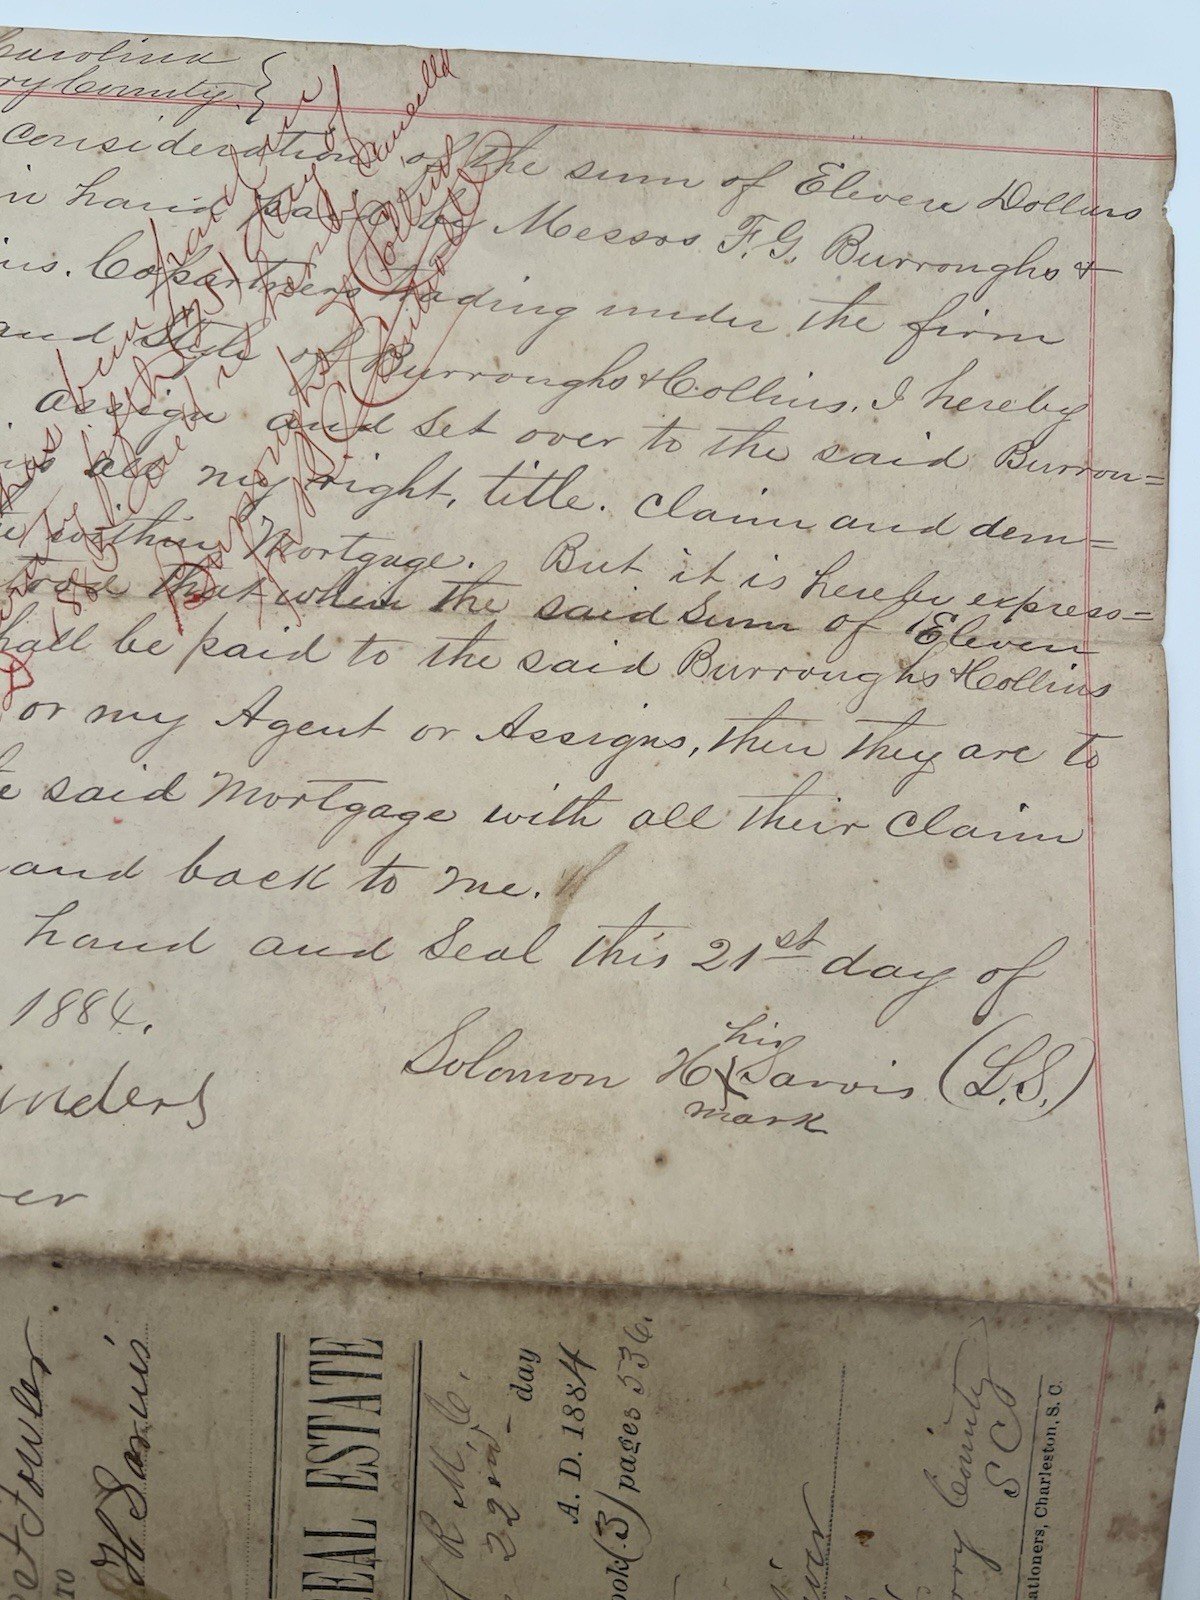 Carolina
ry County }
consideration of the sum of Eleven Dollars
in hand paid by Messrs F. G. Burroughs &
ins. Copartners trading under the firm
and Style of Burroughs & Collins. I hereby
assign and set over to the said Burron=
all my right, title. Claim and dem=
within Mortgage. But it is hereby express=
tood that when the said Sum of Eleven
hall be paid to the said Burroughs & Collins
or my Agent or Assigns, then they are to
e said Mortgage with all their Claim
and back to me.
hand and Seal this 21st day of
1884.
his
Solomon H X Sarvis (L.S.)
mark
nders
er
has been paid in
day of
Burroughs & Collins
Fowler
TO
H Sarvis
EAL ESTATE
R. M. C.
22nd day
A. D. 1884
ook (3) pages 536.
rry County
S C
ationers, Charleston, S. C.